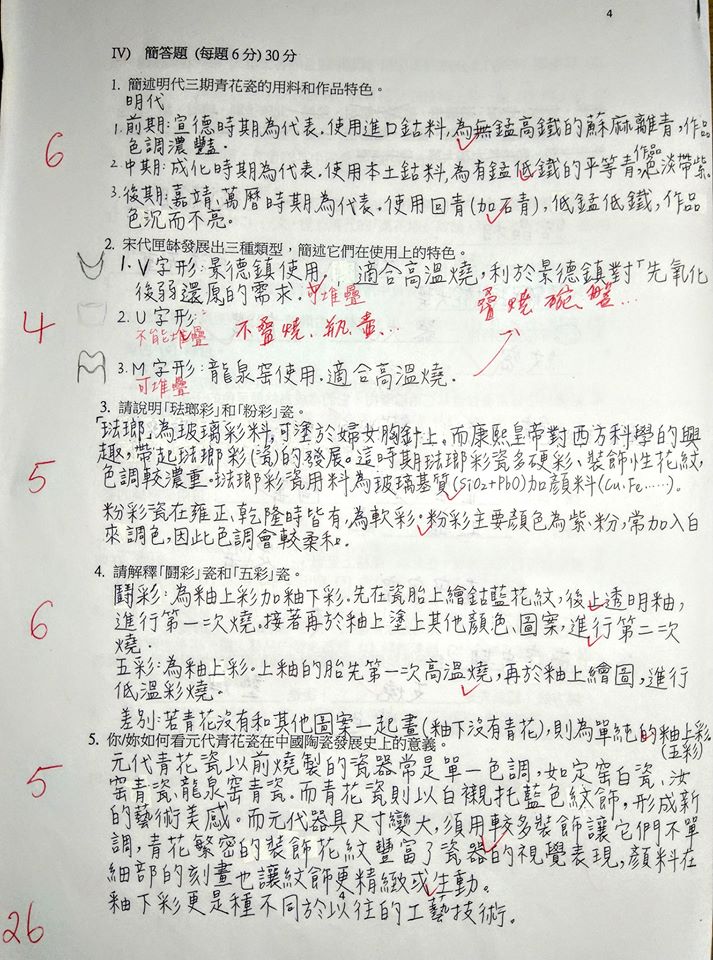 4
IV) 簡答題 (每題6分) 30分
1. 簡述明代三期青花瓷的用料和作品特色。
明代
6
1. 前期:宣德時期為代表.使用進口鈷料,為無錳高鐵的蘇麻離青,作品
色調濃豔。
2. 中期:成化時期為代表.使用本土鈷料,為有錳低鐵的平等青,作品色淡帶紫。
3. 後期:嘉靖、萬曆時期為代表.使用回青(加石青),低錳低鐵,作品
色沉而不亮。
2. 宋代匣缽發展出三種類型,簡述它們在使用上的特色。
1. V字形:景德鎮使用, 適合高溫燒,利於景德鎮對「先氧化
後弱還原的需求. 可堆疊
疊燒 碗、盤...
4
2. U字形:
不能堆疊 不疊燒、瓶、壺...
3. M字形:龍泉窯使用.適合高溫燒.
可堆疊
3. 請說明「琺瑯彩」和「粉彩」瓷。
「琺瑯」為玻璃彩料,可塗於婦女胸針上。而康熙皇帝對西方科學的興
趣,帶起琺瑯彩(瓷)的發展。這時期琺瑯彩瓷多硬彩、裝飾性花紋,
5
色調較濃重.琺瑯彩瓷用料為玻璃基質(SiO2+PbO)加顏料(Cu、Fe.....)。
粉彩瓷在雍正、乾隆時皆有,為軟彩.粉彩主要顏色為紫、粉,常加入白
來調色,因此色調會較柔和.
4. 請解釋「鬪彩」瓷和「五彩」瓷。
鬪彩:為釉上彩加釉下彩.先在瓷胎上繪鈷藍花紋,後上透明釉,
6
進行第一次燒.接著再於釉上塗上其他顏色、圖案,進行第二次
燒.
五彩:為釉上彩.上釉的胎先第一次高溫燒,再於釉上繪圖,進行
低溫彩燒.
差別:若青花沒有和其他圖案一起畫(釉下沒有青花),則為單純的釉上彩
(五彩)
5. 你/妳如何看元代青花瓷在中國陶瓷發展史上的意義。
元代青花瓷以前燒製的瓷器常是單一色調,如定窑白瓷、汝
5
窑青瓷、龍泉窑青瓷.而青花瓷則以白襯托藍色紋飾,形成新
的藝術美感。而元代器具尺寸變大,須用較多裝飾讓它們不單
調,青花繁密的裝飾花紋豐富了瓷器的視覺表現,顏料在
細部的刻畫也讓紋飾更精緻或生動。
4
釉下彩更是種不同於以往的工藝技術.
26